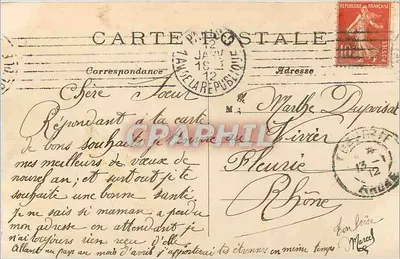 CARTE POSTALE
RÉPUBLIQUE FRANÇAISE
PARIS
JANV
12
AV. DE LA REPUBLIQUE
Correspondance
Adresse
Chère Sœur
Répondant à la carte
de bons souhaits je t'envoie
mes meilleurs de vœux de
nouvel an; et surtout je te
souhaite une bonne santé
je ne sais si maman a perdu
mon adresse en attendant je
n'ai toujours rien reçu d'elle
Allant au pays au mois d'avril j'apporterai les étrennes en même temps
ton frère
Marcel
Marthe Duprisat
Vivier
Fleurie
Rhône
FLEURIE
13 -1
12
RHONE
CPAPHIL